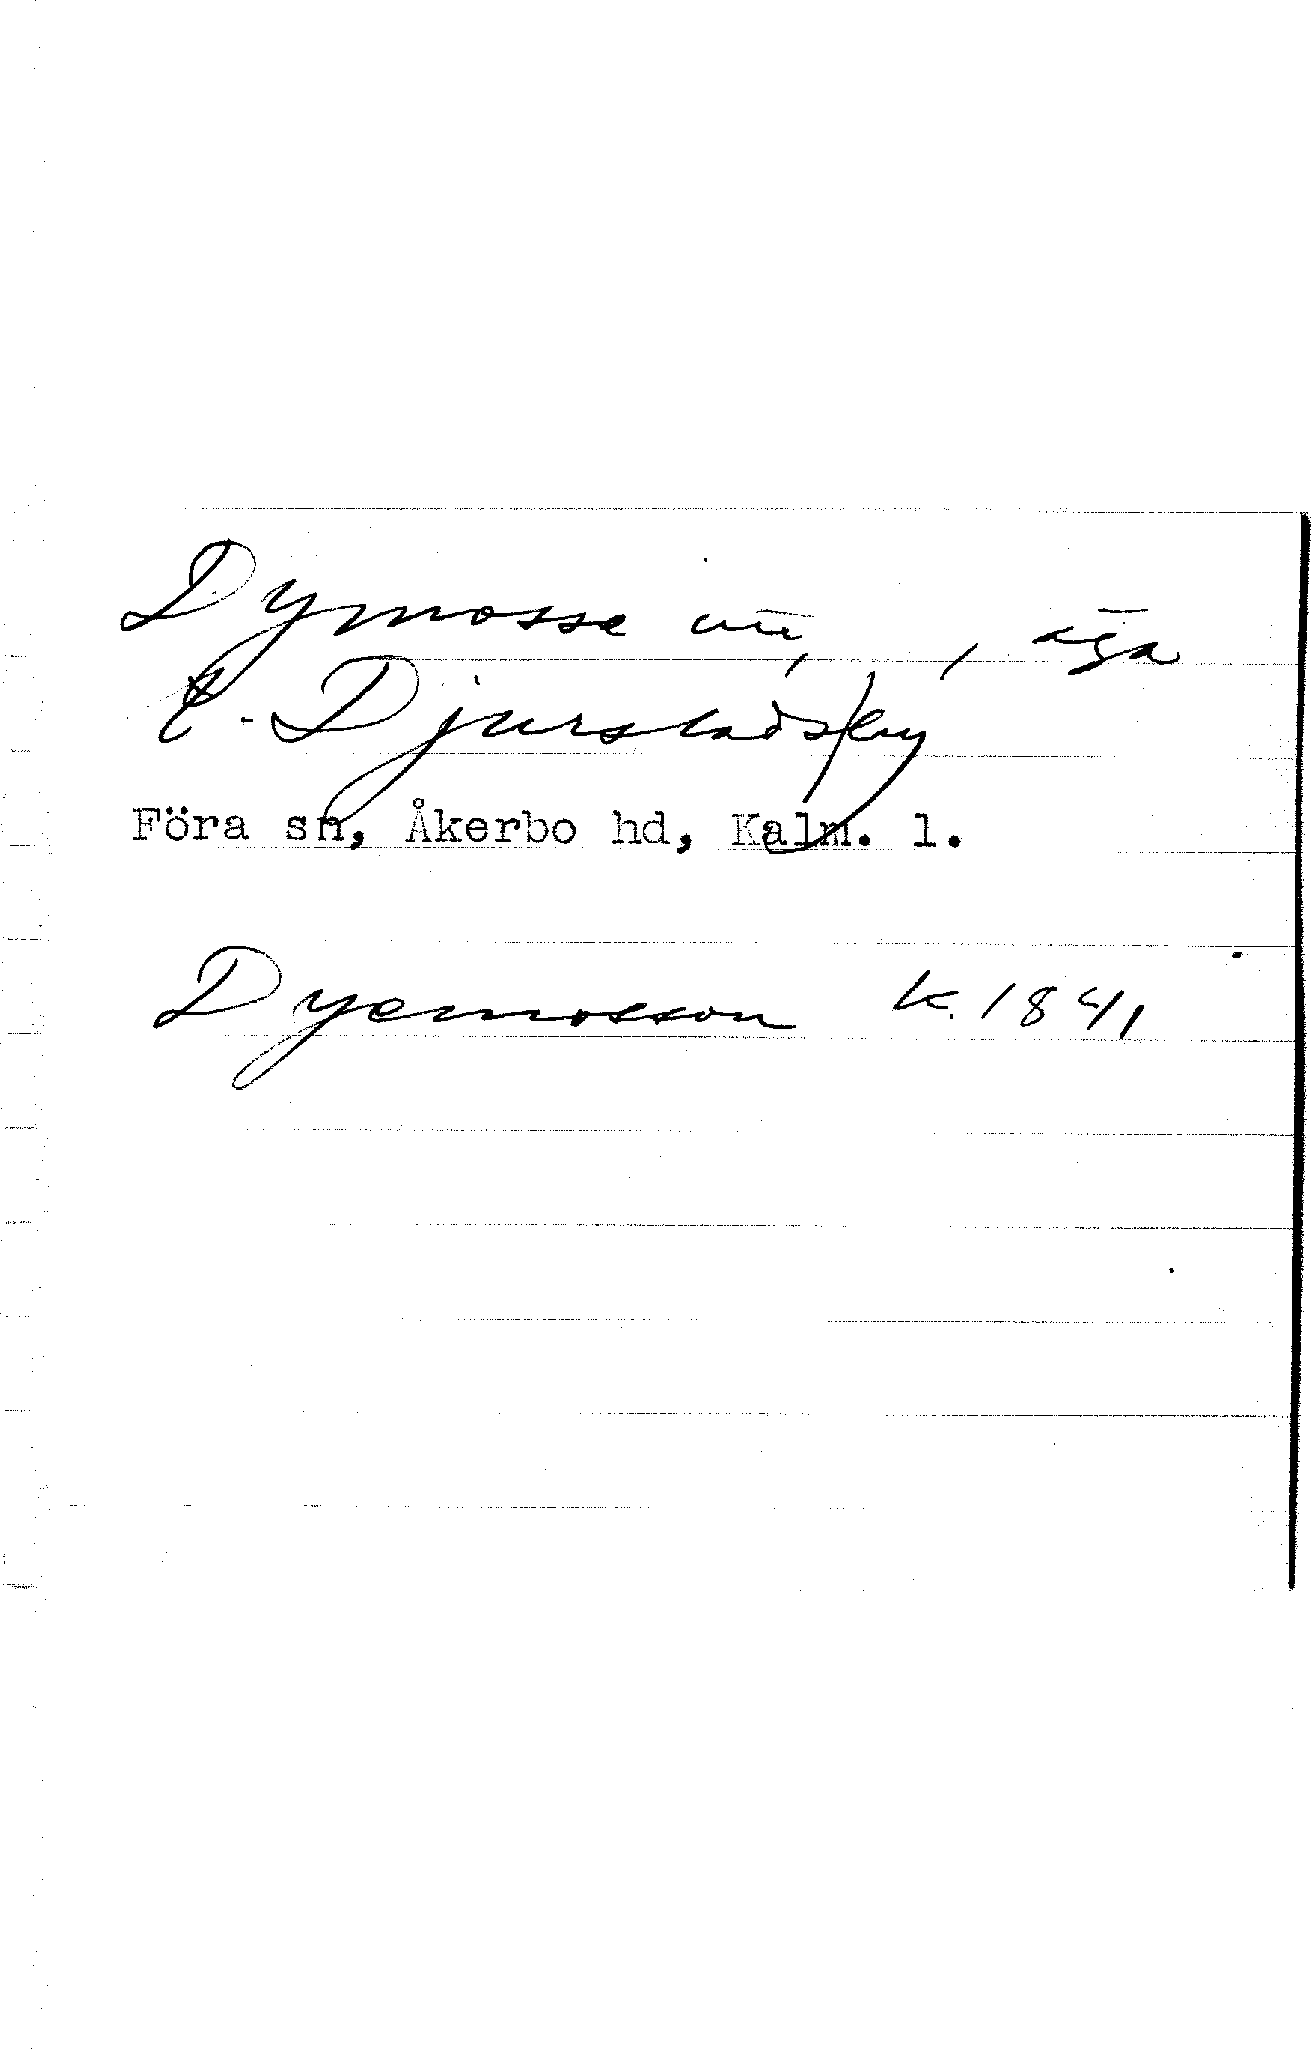 Dymosse , äga
t. Djurstadsby
Föra sn, Åkerbo hd, Kalm. l.
Dyemossen k. 1841